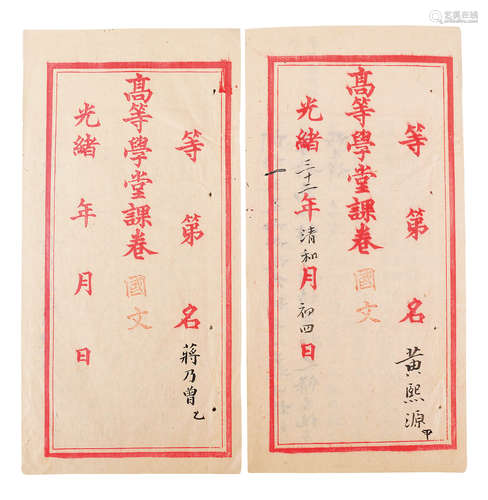 等第名 黄熙源 甲
高等學堂課卷 國文
光緒三十二年清和月初四日
等第名 蔣乃曾 乙
高等學堂課卷 國文
光緒 年 月 日